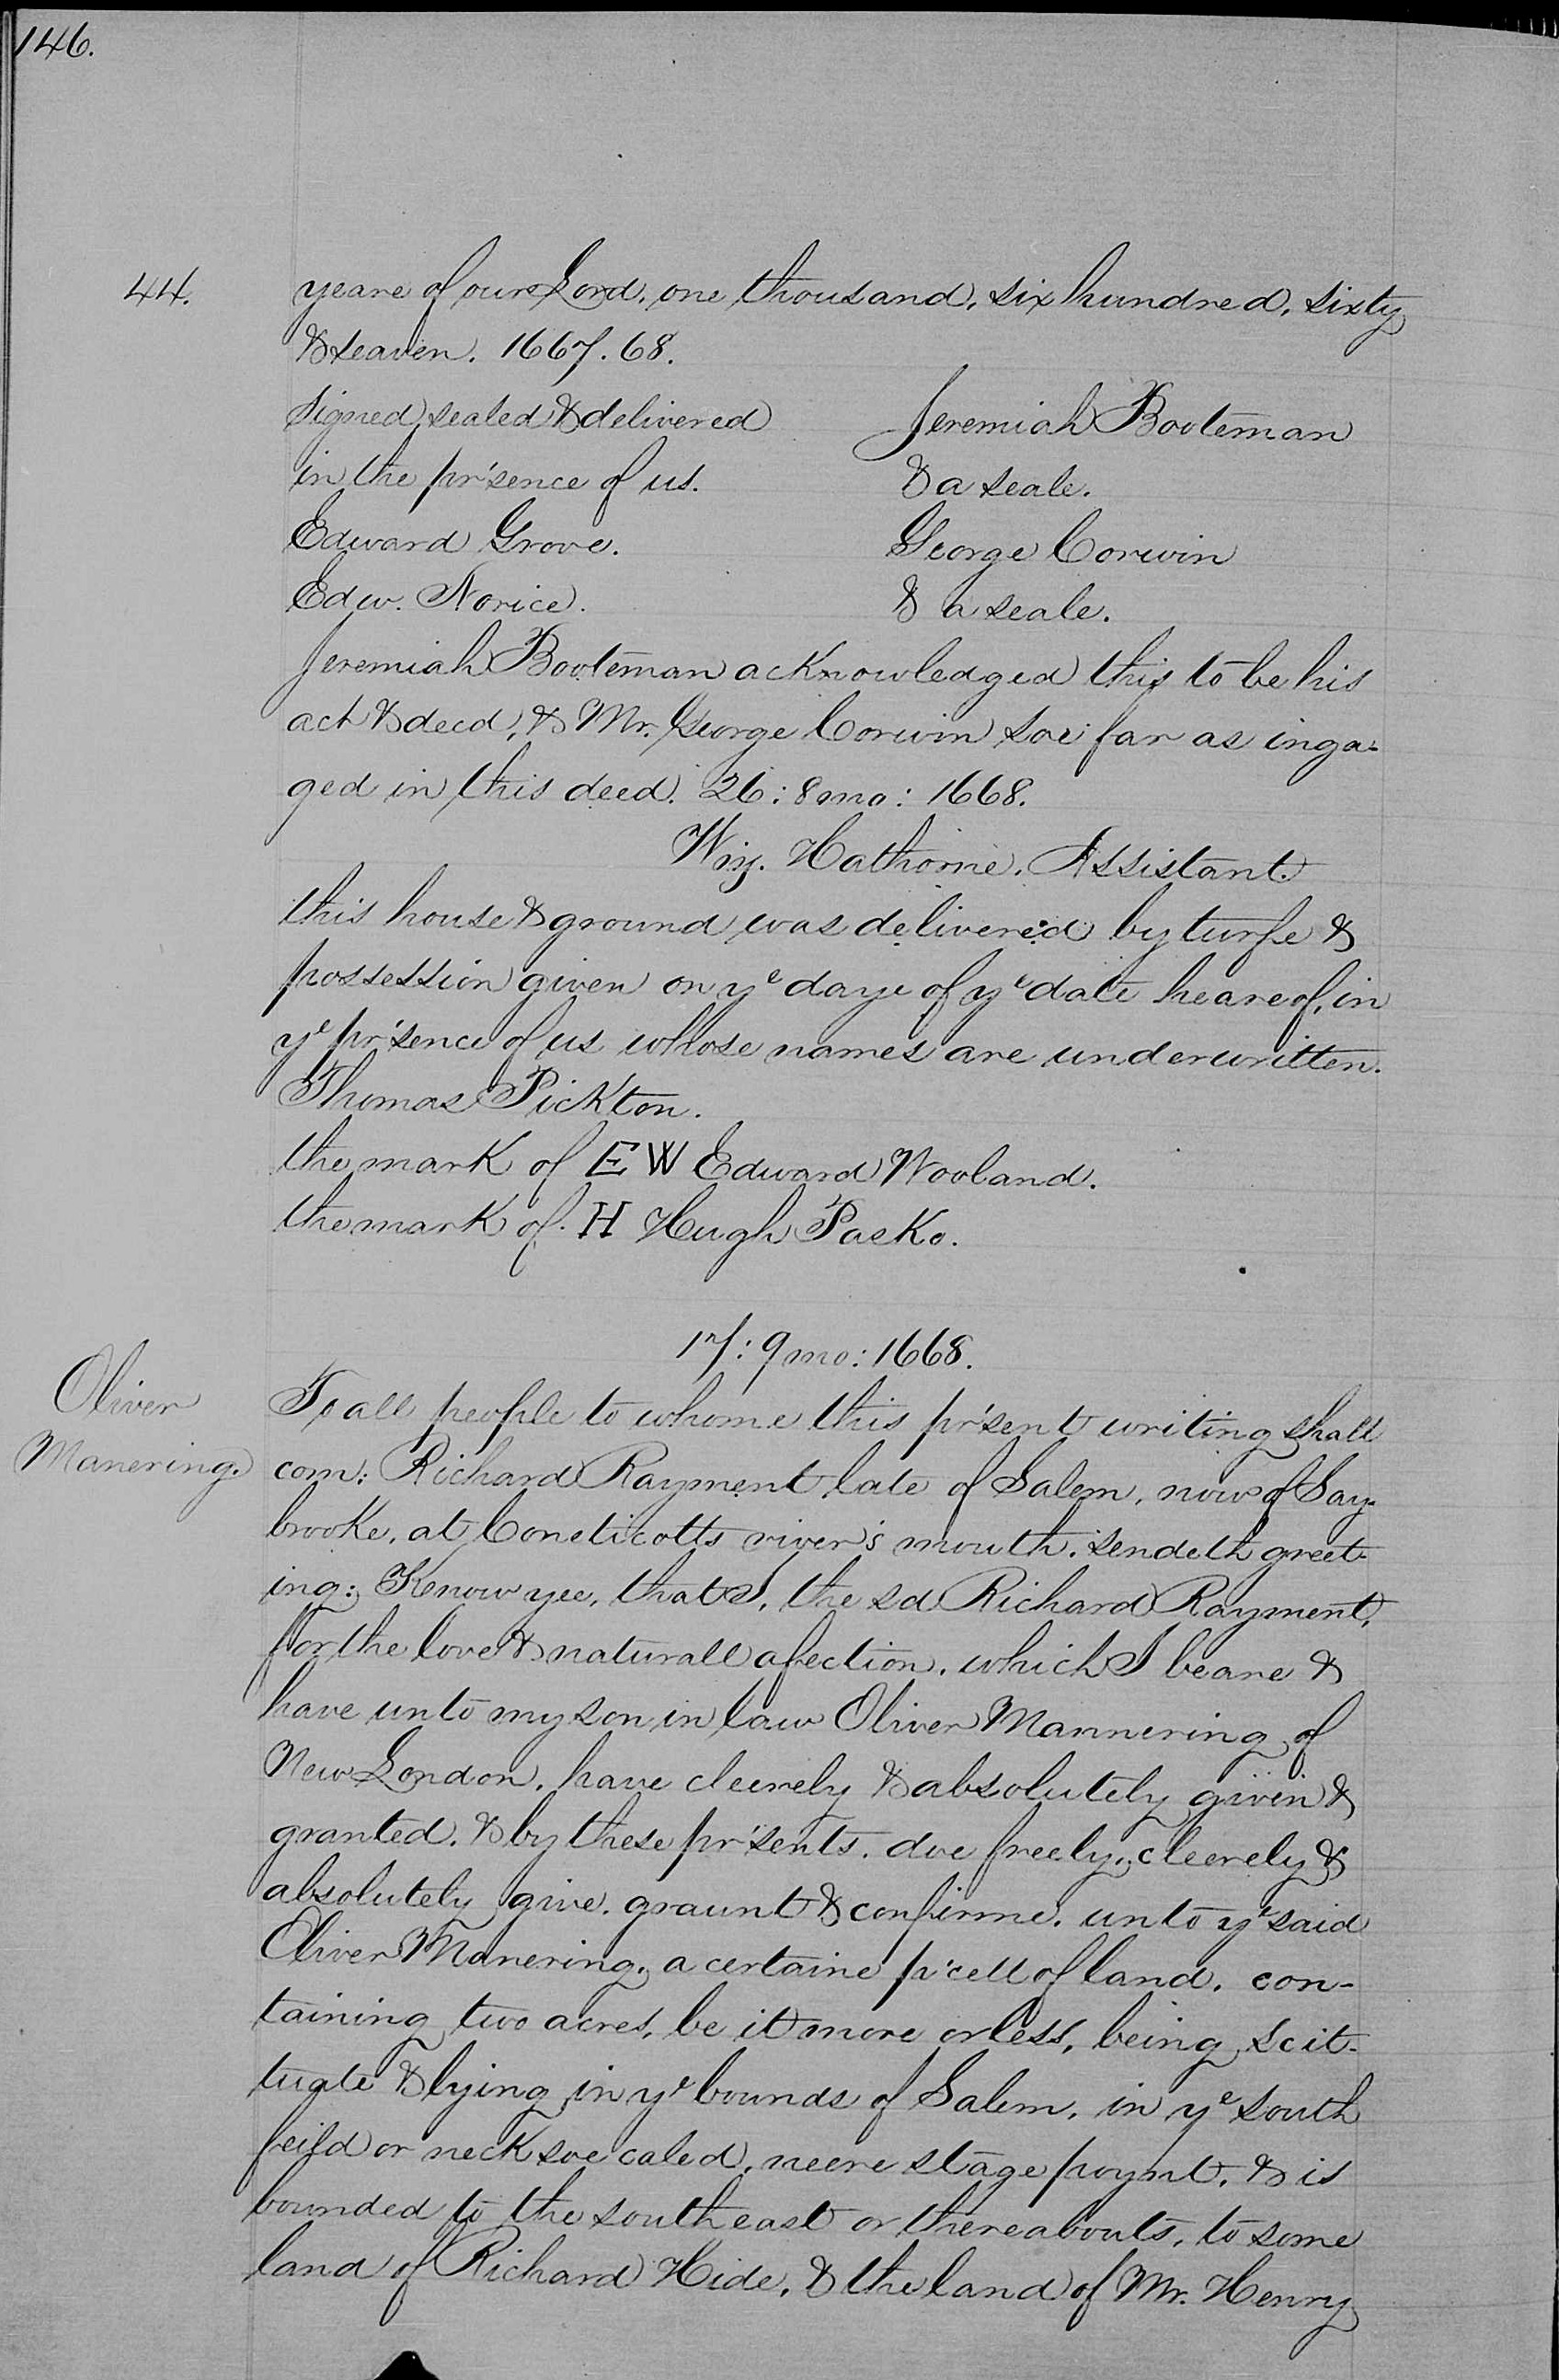 146.
44. yeare of our Lord, one thousand, six hundred, sixty
& seaven. 1667. 68.
Signed, sealed & delivered Jeremiah Booteman
in the pr'sence of us. & a seale.
Edward Grove. George Corwin
Edw. Norice. & a seale.
Jeremiah Booteman acknowledged this to be his
act & deed, & Mr. George Corwin soe far as inga-
ged in this deed. 26 : 8 mo : 1668.
Wm. Hathorne. Assistant.
this house & ground was delivered by turfe &
possession given on ye daye of ye date heareof, in
ye pr'sence of us whose names are underwritten.
Thomas Pickton.
the mark of E W Edward Wooland.
the mark of. H Hugh Pasko.
17 : 9 mo : 1668.
Oliver
Manering.
To all people to whome this pr'sent writing shall
com: Richard Rayment late of Salem, now of Say-
brooke, at Coneticotts river's mouth. sendeth greet-
ing: Know yee, that I, the sd Richard Rayment,
for the love & naturall afection, which I beare &
have unto my son in law Oliver Mannering of
New London, have cleerely & absolutely given &
granted, & by these pr'sents. doe freely, cleerely &
absolutely give. graunt & confirme. unto ye said
Oliver Manering, a certaine p'cell of land, con-
taining two acres, be it more or less, being scit-
tuate & lying in ye bounds of Salem, in ye south
feild or neck soe caled, neere stage poynt, & is
bounded to the southeast or thereabouts, to some
land of Richard Hide, & the land of Mr. Henry